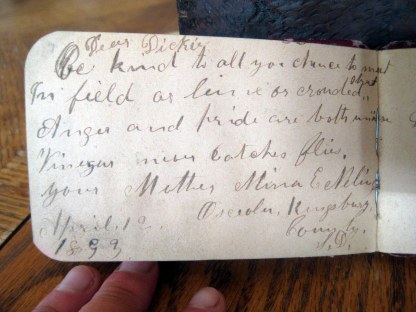 Dear Dickie
Be kind to all you chance to meet
In field or lane or crowded street
Anger and pride are both unwise
Vinegar never catches flie.
Your Mother Minna E
Osceola. Kingsbury.
County.
April. 12. S.D.
1899